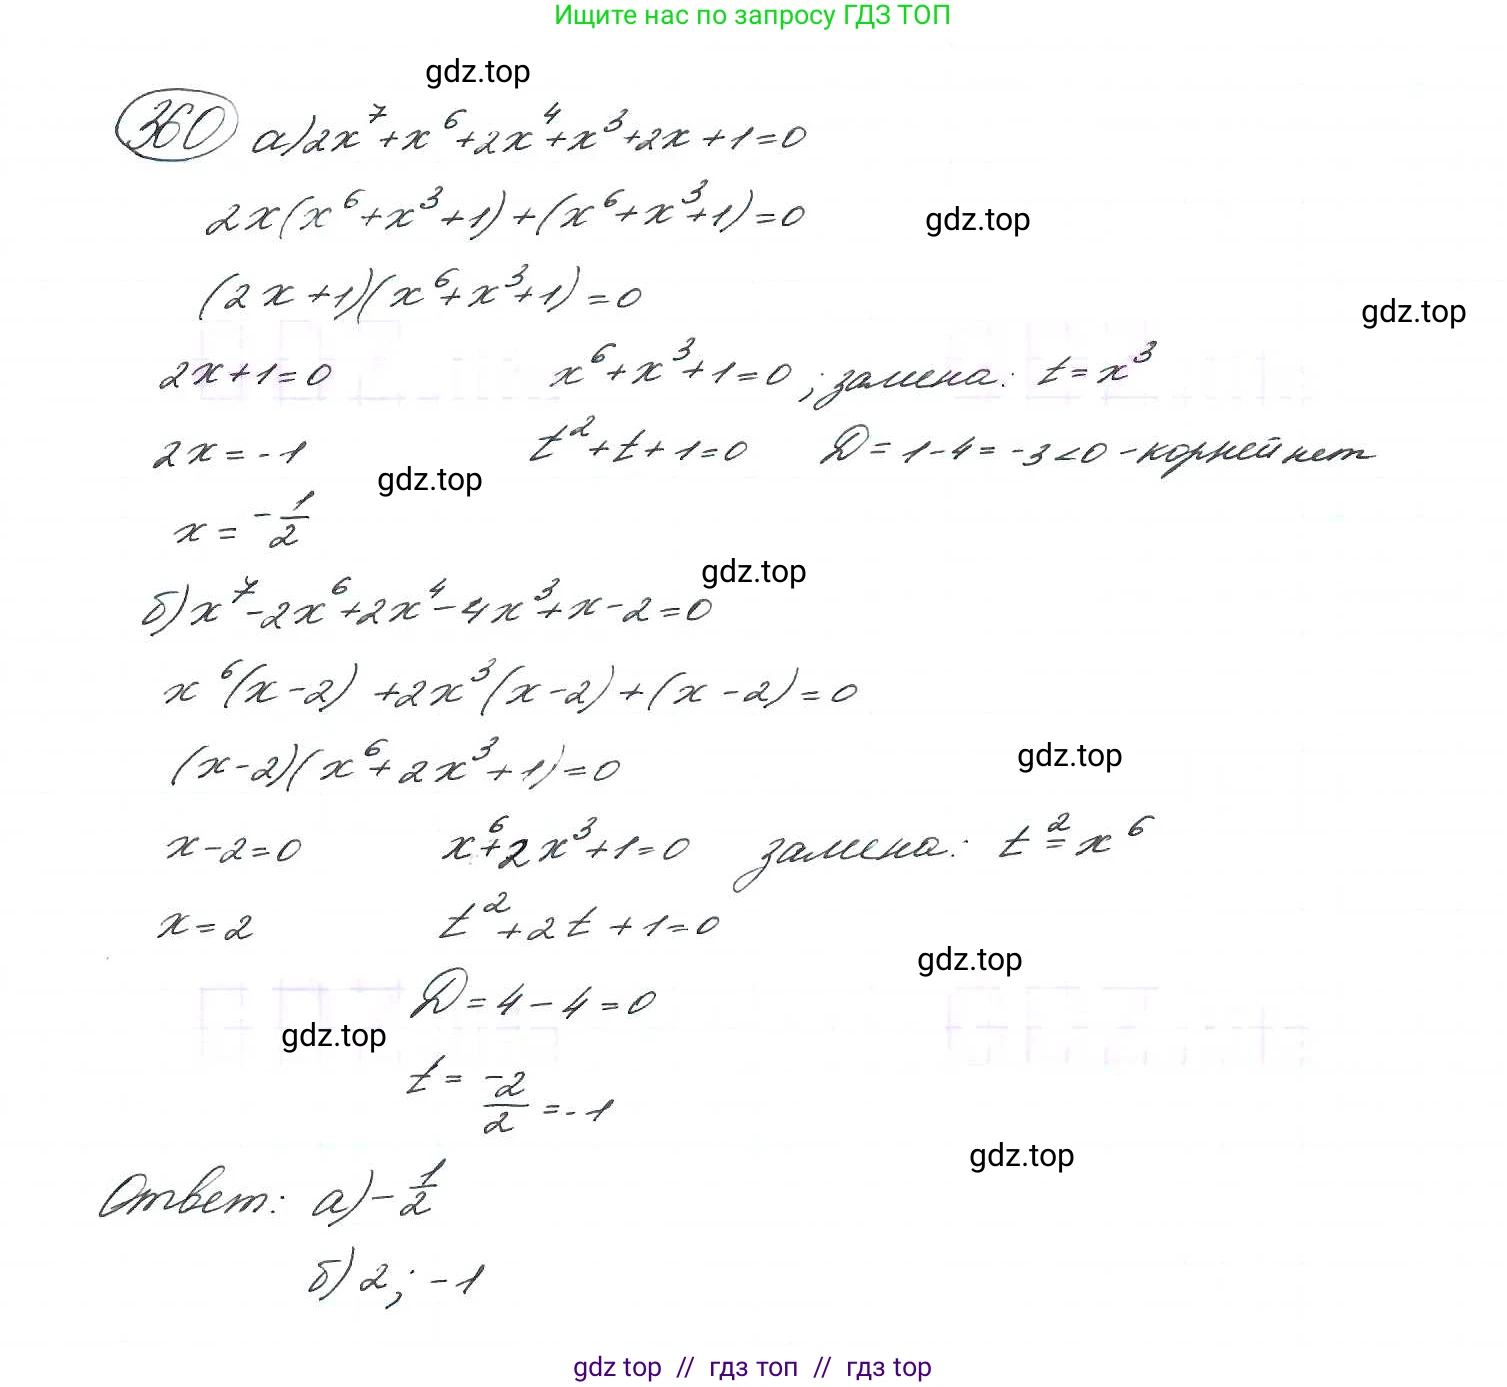 Ищите нас по запросу ГДЗ ТОП
gdz.top
360 а) 2x⁷+x⁶+2x⁴+x³+2x+1=0
2x(x⁶+x³+1)+(x⁶+x³+1)=0
gdz.top
(2x+1)(x⁶+x³+1)=0
gdz.top
2x+1=0 x⁶+x³+1=0 ; замена: t=x³
2x=-1 t²+t+1=0 D=1-4=-3<0 -корней нет
gdz.top
x = -1/2
gdz.top
б) x⁷-2x⁶+2x⁴-4x³+x-2=0
x⁶(x-2)+2x³(x-2)+(x-2)=0
(x-2)(x⁶+2x³+1)=0
gdz.top
x-2=0 x⁶+2x³+1=0 замена: t²=x⁶
x=2 t²+2t+1=0
gdz.top
D=4-4=0
gdz.top
t = -2/2 = -1
gdz.top
Ответ: а) -1/2
б) 2; -1
gdz top // гдз топ // гдз top